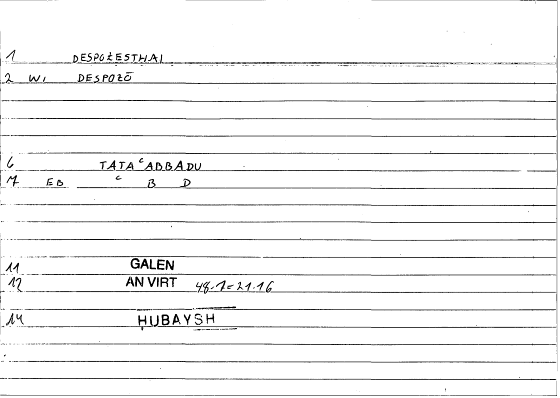 1 DESPOZESTHAI
2 WI DESPOZŌ
6 TATAʿABBADU
7 EB ʿ B D
11 GALEN
12 AN VIRT 48.1=21.16
14 ḤUBAYSH